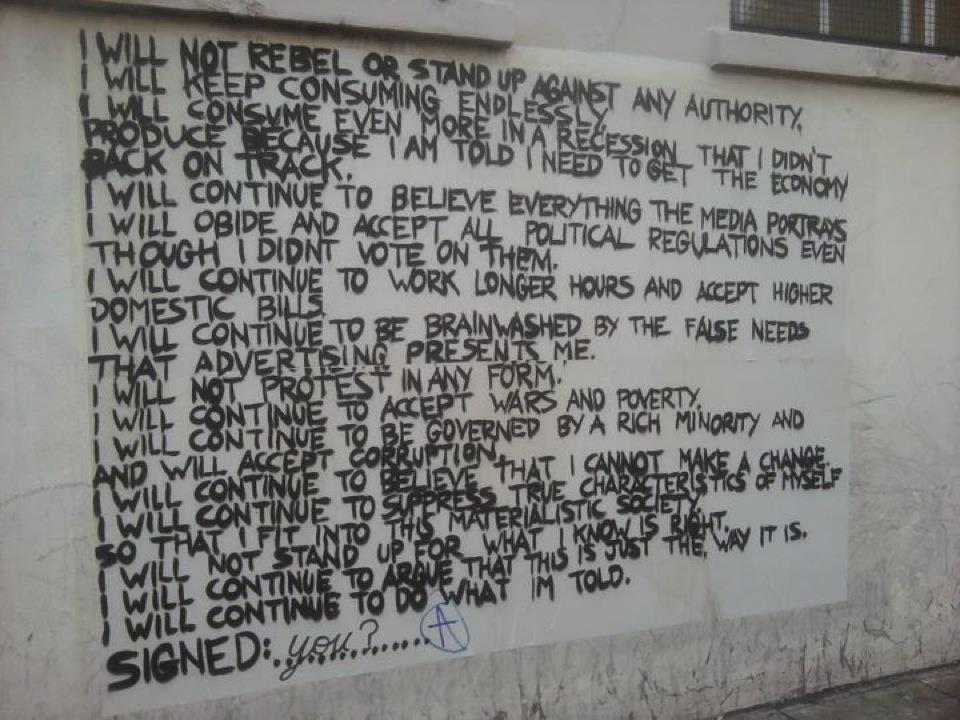 I WILL NOT REBEL OR STAND UP AGAINST ANY AUTHORITY.
I WILL KEEP CONSUMING ENDLESSLY.
I WILL CONSUME EVEN MORE IN A RECESSION THAT I DIDN'T
PRODUCE BECAUSE I AM TOLD I NEED TO GET THE ECONOMY
BACK ON TRACK.
I WILL CONTINUE TO BELIEVE EVERYTHING THE MEDIA PORTRAYS
I WILL OBIDE AND ACCEPT ALL POLITICAL REGULATIONS EVEN
THOUGH I DIDNT VOTE ON THEM.
I WILL CONTINUE TO WORK LONGER HOURS AND ACCEPT HIGHER
DOMESTIC BILLS.
I WILL CONTINUE TO BE BRAINWASHED BY THE FALSE NEEDS
THAT ADVERTISING PRESENTS ME.
I WILL NOT PROTEST IN ANY FORM.
I WILL CONTINUE TO ACCEPT WARS AND POVERTY.
I WILL CONTINUE TO BE GOVERNED BY A RICH MINORITY AND
AND WILL ACCEPT CORRUPTION.
I WILL CONTINUE TO BELIEVE THAT I CANNOT MAKE A CHANGE.
I WILL CONTINUE TO SUPPRESS TRUE CHARACTERISTICS OF MYSELF
SO THAT I FIT INTO THIS MATERIALISTIC SOCIETY.
I WILL NOT STAND UP FOR WHAT I KNOW IS RIGHT.
I WILL CONTINUE TO ARGUE THAT THIS IS JUST THE WAY IT IS.
I WILL CONTINUE TO DO WHAT IM TOLD.
SIGNED: you?............ A